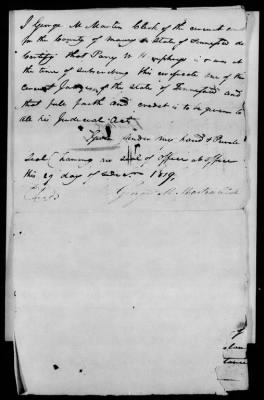 I George M Martin Clerk of the circuit court
for the County of Maury & State of Tennessee do
Certify that Parry W Humphreys is & was at
the time of subscribing this certificate one of the
Circuit Judges of the State of Tennessee and
that full faith and credit is to be given to
all his Judicial Act
Given under my hand & Private
Seal (having no seal of office) at office
this 29 day of 1819,
George M. Martin Clk